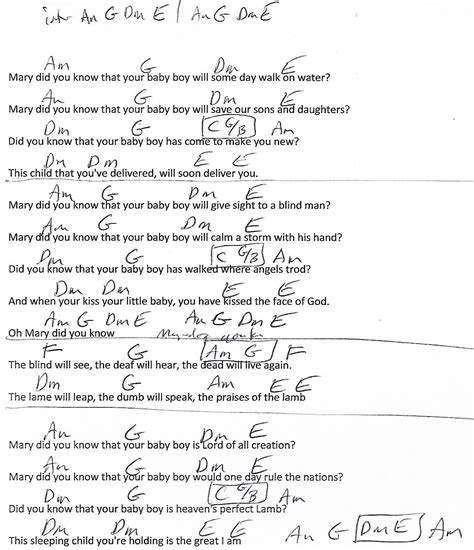 intro Am G Dm E / Am G Dm E
Am G Dm E
Mary did you know that your baby boy will some day walk on water?
Am G Dm E
Mary did you know that your baby boy will save our sons and daughters?
Dm G C G/B Am
Did you know that your baby boy has come to make you new?
Dm Dm E E
This child that you've delivered, will soon deliver you.
Am G Dm E
Mary did you know that your baby boy will give sight to a blind man?
Am G Dm E
Mary did you know that your baby boy will calm a storm with his hand?
Dm G C G/B Am
Did you know that your baby boy has walked where angels trod?
Dm Dm E E
And when your kiss your little baby, you have kissed the face of God.
Am G Dm E Am G Dm E
Oh Mary did you know
F G Am G F
The blind will see, the deaf will hear, the dead will live again.
Dm G Am E E
The lame will leap, the dumb will speak, the praises of the lamb
Am G Dm E
Mary did you know that your baby boy is Lord of all creation?
Am G Dm E
Mary did you know that your baby boy would one day rule the nations?
Dm G C G/B Am
Did you know that your baby boy is heaven's perfect Lamb?
Dm Dm E E Am G Dm E Am
This sleeping child you're holding is the great I am